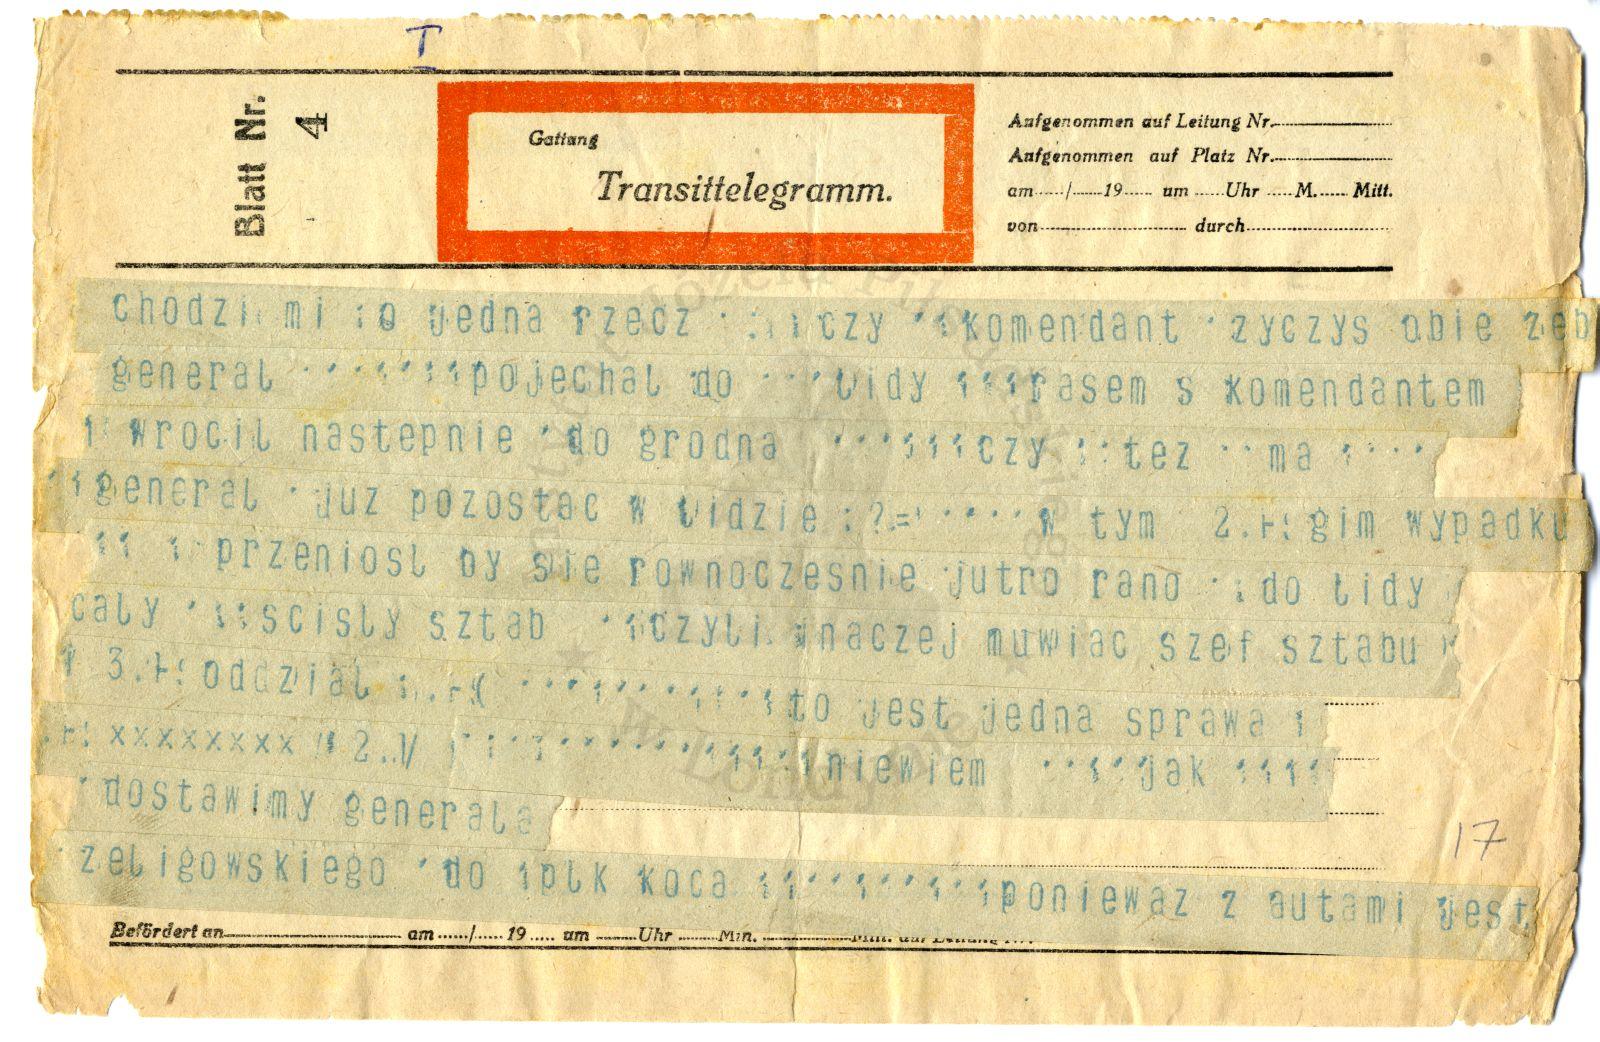 I
Blatt Nr.
4
Gattung
Transittelegramm.
Aufgenommen auf Leitung Nr.
Aufgenommen auf Platz Nr.
am / 19 um Uhr M. Mitt.
von durch
chodzi mi o jedna rzecz czy komendant zyczys obie zeb
general pojechal do lidy rasem s komendantem
i wrocil nastepnie do grodna czy tez ma
general juz pozostac w lidzie :?= w tym 2. gim wypadku
przeniosl by sie rownoczesnie jutro rano do lidy
caly scisly sztab czyli inaczej muwiac szef sztabu
i 3. oddzial to jest jedna sprawa i
xxxxxxxx 2. niewiem jak
dostawimy generala
zeligowskiego do plk koca poniewaz z autami jest
17
Befördert an am / 19 um Uhr Min.